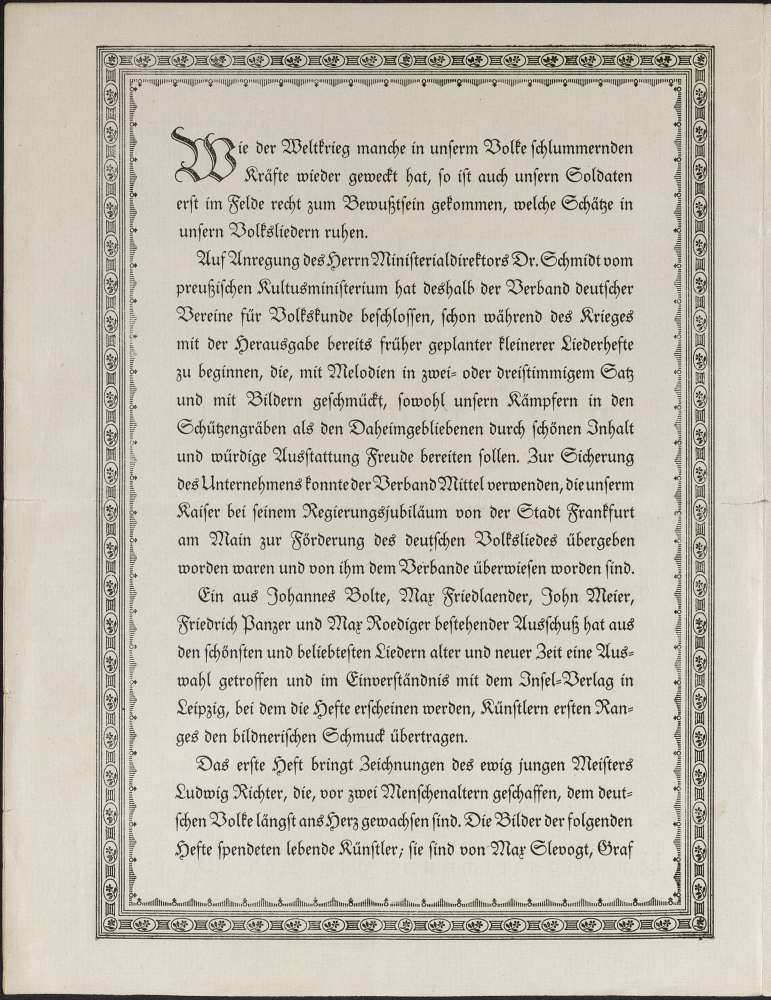 Wie der Weltkrieg manche in unserm Volke schlummernden
Kräfte wieder geweckt hat, so ist auch unsern Soldaten
erst im Felde recht zum Bewußtsein gekommen, welche Schätze in
unsern Volksliedern ruhen.
Auf Anregung des Herrn Ministerialdirektors Dr. Schmidt vom
preußischen Kultusministerium hat deshalb der Verband deutscher
Vereine für Volkskunde beschlossen, schon während des Krieges
mit der Herausgabe bereits früher geplanter kleinerer Liederhefte
zu beginnen, die, mit Melodien in zwei- oder dreistimmigem Satz
und mit Bildern geschmückt, sowohl unsern Kämpfern in den
Schützengräben als den Daheimgebliebenen durch schönen Inhalt
und würdige Ausstattung Freude bereiten sollen. Zur Sicherung
des Unternehmens konnte der Verband Mittel verwenden, die unserm
Kaiser bei seinem Regierungsjubiläum von der Stadt Frankfurt
am Main zur Förderung des deutschen Volksliedes übergeben
worden waren und von ihm dem Verbande überwiesen worden sind.
Ein aus Johannes Bolte, Max Friedlaender, John Meier,
Friedrich Panzer und Max Roediger bestehender Ausschuß hat aus
den schönsten und beliebtesten Liedern alter und neuer Zeit eine Aus-
wahl getroffen und im Einverständnis mit dem Insel-Verlag in
Leipzig, bei dem die Hefte erscheinen werden, Künstlern ersten Ran-
ges den bildnerischen Schmuck übertragen.
Das erste Heft bringt Zeichnungen des ewig jungen Meisters
Ludwig Richter, die, vor zwei Menschenaltern geschaffen, dem deut-
schen Volke längst ans Herz gewachsen sind. Die Bilder der folgenden
Hefte spendeten lebende Künstler; sie sind von Max Slevogt, Graf